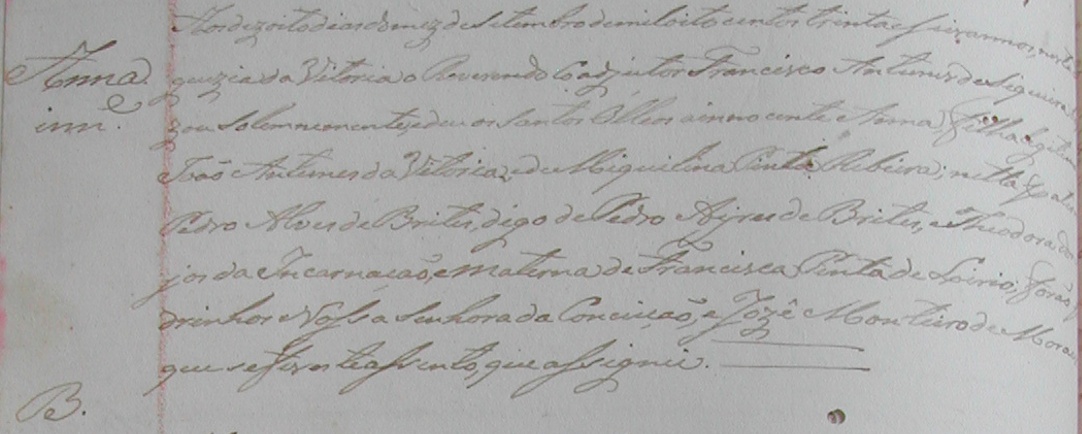 Aos dezoito dias do mez de Setembro de mil oito centos trinta e seis annos, nesta
Anna.
inn.e
guezia da Vitoria o Reverendo Coadjutor Francisco Antunes de Siqueira
zou solemnemente, e deu os Santos Oleos a innocente Anna, filha legitima
João Antunes da Vitoria, e de Miquilina Pinta Ribeira; netta pater
Pedro Alves de Brites, digo de Pedro Ayres de Brites, e Theodora de
jos da Incarnacão, e materna de Francisca Pinta de Loirio; forão
drinhos Nossa Senhora da Conceição, e Jozê Monteiro de Morae
que se fez este assento, que assignei.
B.